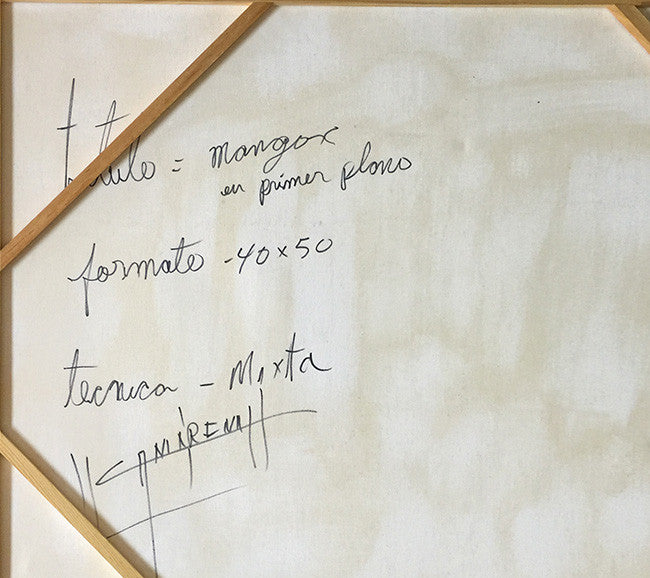 titulo = mangos
en primer plano
formato - 40x50
tecnica - Mixta
CAMARENA